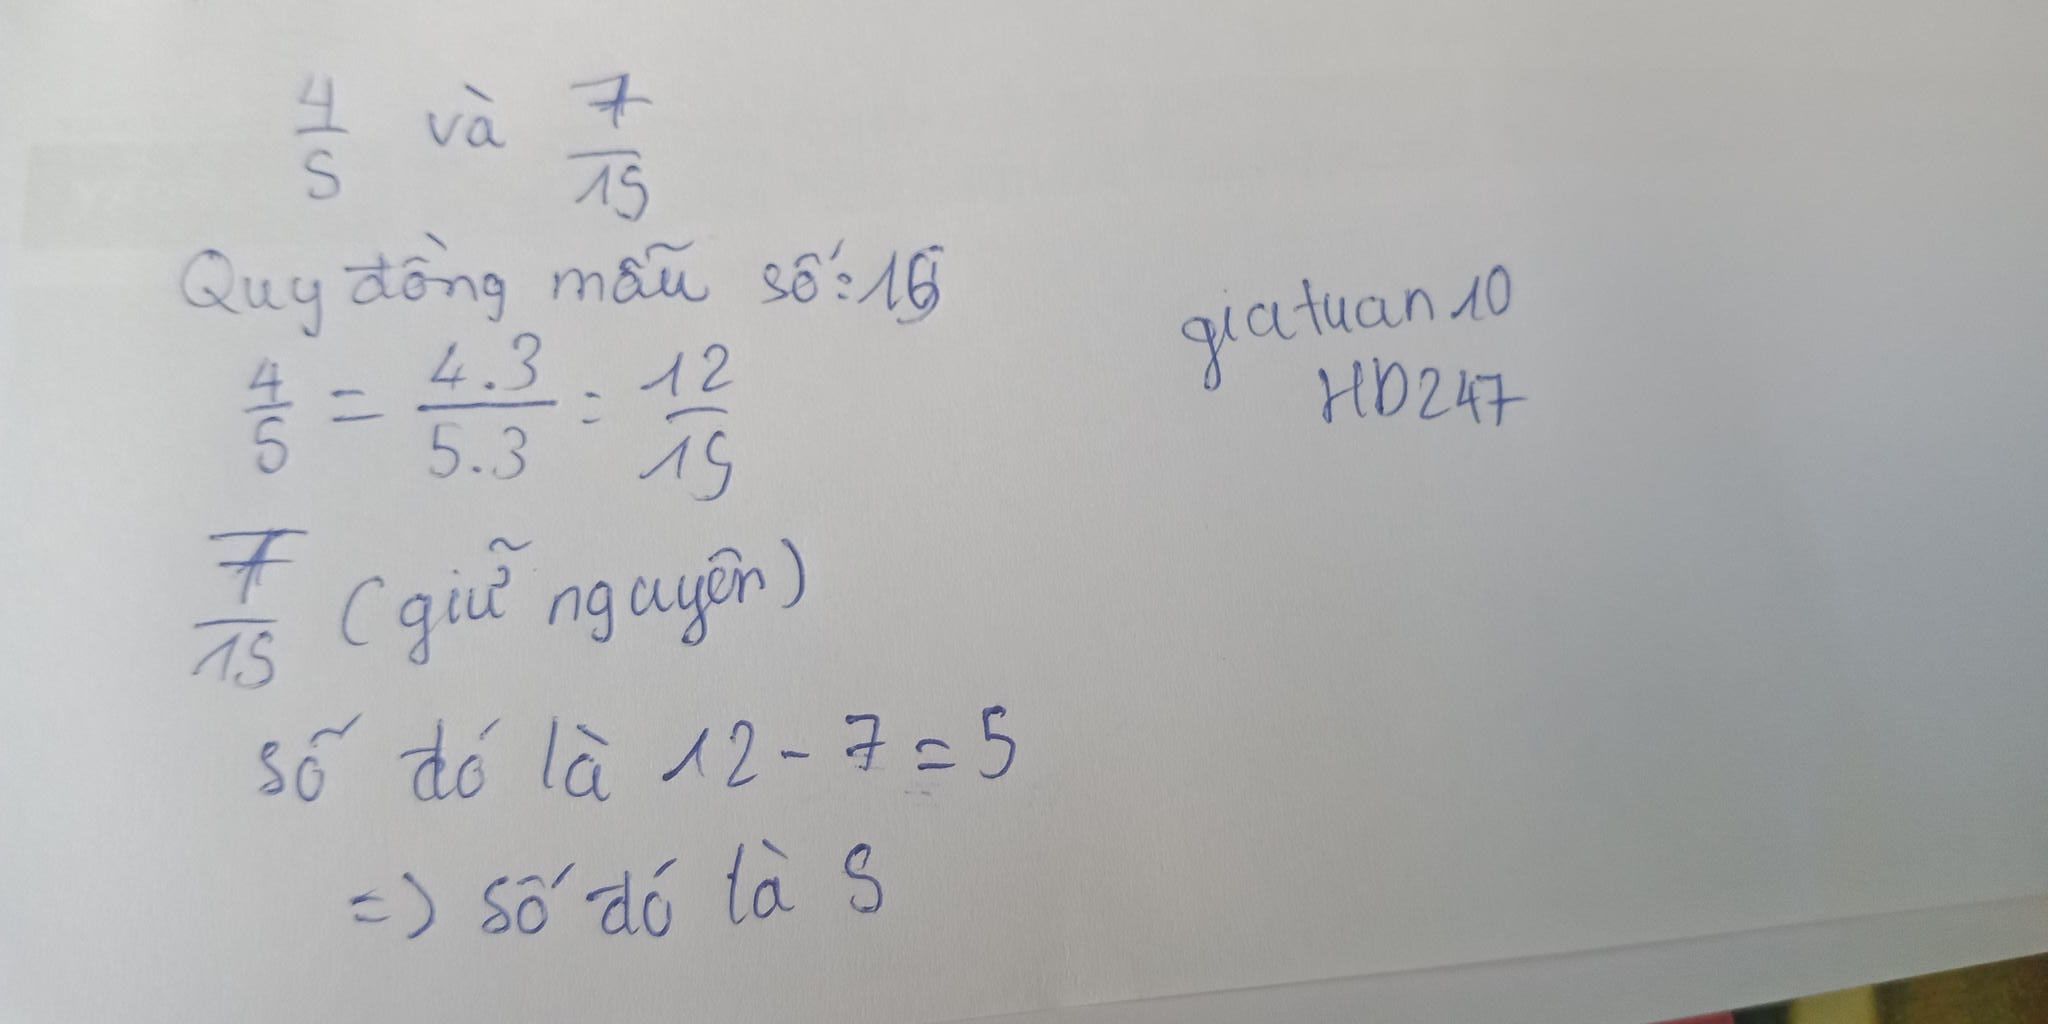 4/5 và 7/15
Quy đồng mẫu số: 15
4/5 = 4.3/5.3 = 12/15
7/15 (giữ nguyên)
số đó là 12 - 7 = 5
=> số đó là 5
giatuan10
HD247